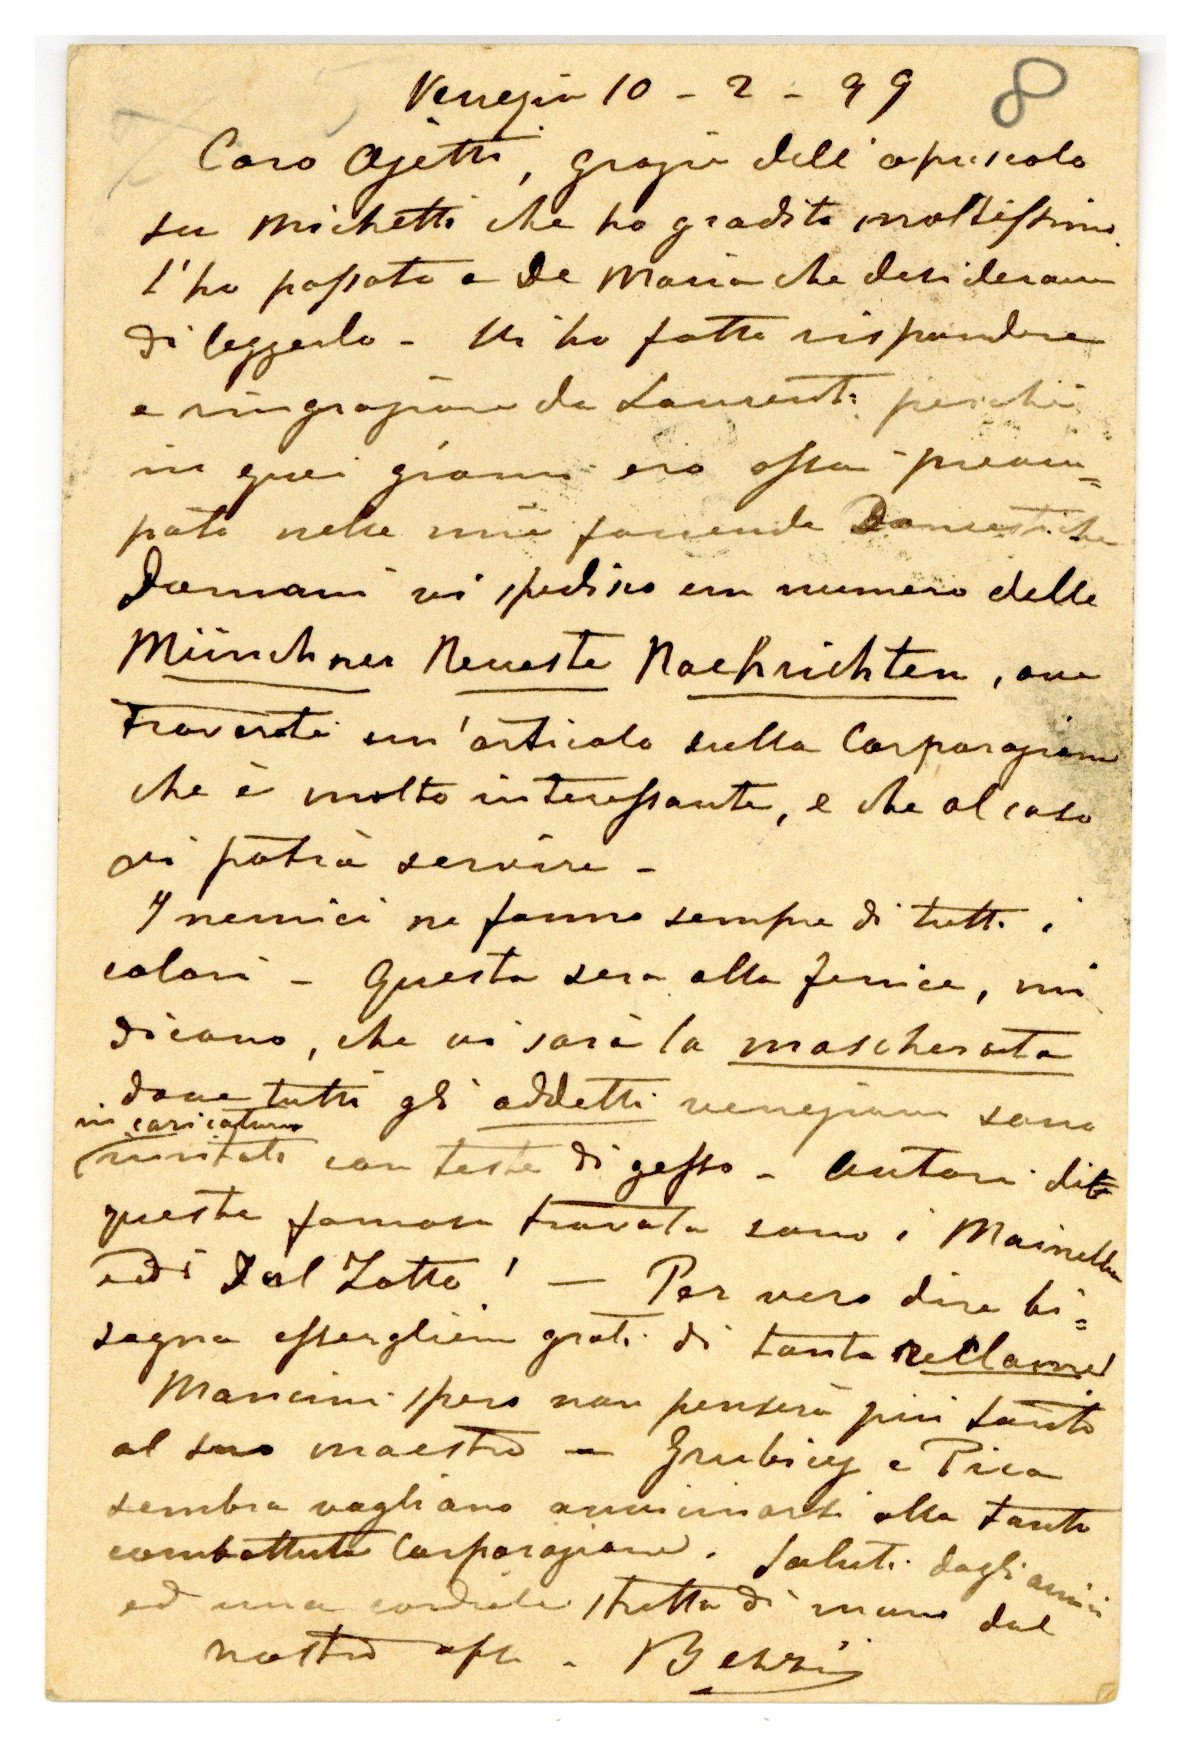 8
Venezia 10 - 2 - 99
Caro Ojetti, grazie dell'opuscolo
su Michetti che ho gradito moltissimo.
L'ho passato a De Maria che desiderava
di leggerlo - Vi ho fatto rispondere
e ringraziare da Laurenti perchè
in quei giorni ero assai preoccu=
pato nelle mie faccende Domestiche
Domani vi spedisco un numero delle
Münchner Neueste Nachrichten, ove
troverete un'articolo sulla Corporazione
che è molto interessante, e che al caso
vi potrà servire -
I nemici ne fanno sempre di tutti i
colori - Questa sera alla Fenice, mi
dicono, che vi sarà la mascherata
dove tutti gli addetti veneziani sono
in caricatura
imitati con teste di gesso - Autori di
questa famosa trovata sono i Mainella
ed i Dal Zotto! - Per vero dire bi=
sogna essergliene grati di tanta reclame!
Mancini spero non penserà più tanto
al suo maestro - Grubicy e Pica
sembra vogliano avvicinarsi alla tanto
combattuta Corporazione. Saluti dagli amici
ed una cordiale stretta di mano dal
vostro aff. - Bezzi